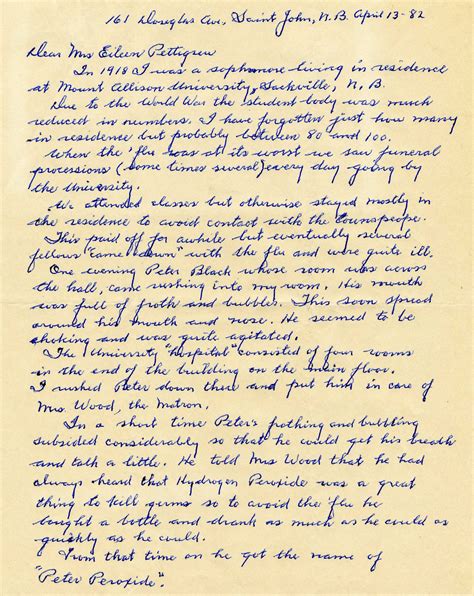 161 Douglas Ave, Saint John, N.B. April 13-82
Dear Mrs Eileen Pettigrew
In 1918 I was a sophmore living in residence
at Mount Allison University, Sackville, N. B.
Due to the World War the student body was much
reduced in numbers. I have forgotten just how many
in residence but probably between 80 and 100.
When the 'flu was at its worst we saw funeral
processions (some times several) every day going by
the University.
We attended classes but otherwise stayed mostly in
the residence to avoid contact with the townspeople.
This paid off for awhile but eventually several
fellows "came down" with the flu and were quite ill.
One evening Peter Black whose room was across
the hall, came rushing into my room. His mouth
was full of froth and bubbles. This soon spread
around his mouth and nose. He seemed to be
choking and was quite agitated.
The University "hospital" consisted of four rooms
in the end of the building on the main floor.
I rushed Peter down there and put him in care of
Mrs. Wood, the Matron.
In a short time Peter's frothing and bubbling
subsided considerably so that he could get his breath
and talk a little. He told Mrs Wood that he had
always heard that Hydrogen Peroxide was a great
thing to kill germs so to avoid the flu he
bought a bottle and drank as much as he could as
quickly as he could.
From that time on he got the name of
"Peter Peroxide".